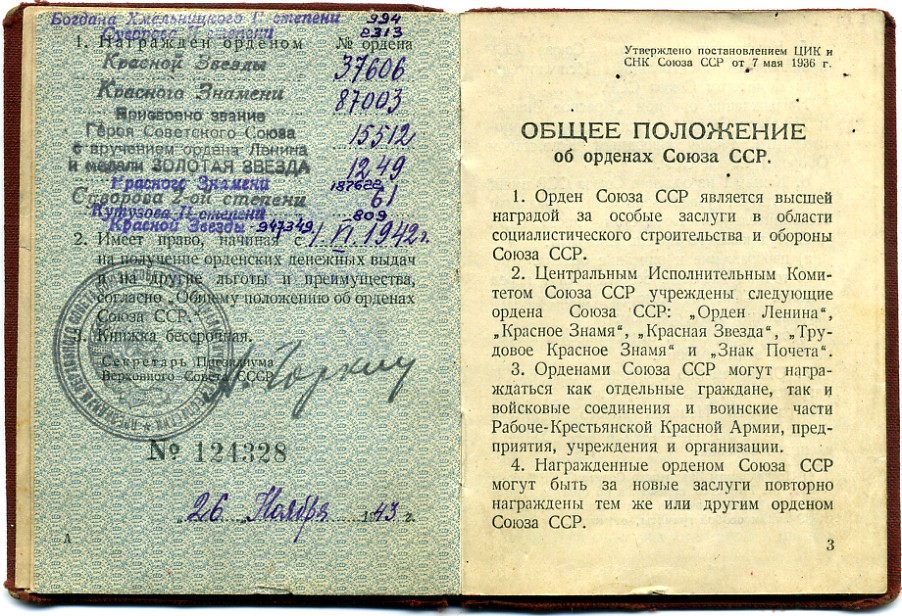 Богдана Хмельницкого I степени 994
Суворова II степени 2313
1. Награжден орденом № ордена
Красной Звезды 37606
Красного Знамени 87003
Присвоено звание
Героя Советского Союза
с вручением ордена Ленина 15512
и медали ЗОЛОТАЯ ЗВЕЗДА 1249
Красного Знамени
Суворова 2-ой степени 61
Кутузова II степени 809
Красной Звезды 947349
2. Имеет право, начиная с 1. VI. 1942 г.
на получение орденских денежных выдач
и на другие льготы и преимущества,
согласно „Общему положению об орденах
Союза ССР.“
3. Книжка бессрочная.
Секретарь Президиума
Верховного Совета СССР
А Горкин
№ 124328
„26 Ноября 1943 г.
А
Утверждено постановлением ЦИК и
СНК Союза ССР от 7 мая 1936 г.
ОБЩЕЕ ПОЛОЖЕНИЕ
об орденах Союза ССР.
1. Орден Союза ССР является высшей
наградой за особые заслуги в области
социалистического строительства и обороны
Союза ССР.
2. Центральным Исполнительным Коми-
тетом Союза ССР учреждены следующие
ордена Союза ССР: „Орден Ленина“,
„Красное Знамя“, „Красная Звезда“, „Тру-
довое Красное Знамя“ и „Знак Почета“.
3. Орденами Союза ССР могут награ-
ждаться как отдельные граждане, так и
войсковые соединения и воинские части
Рабоче-Крестьянской Красной Армии, пред-
приятия, учреждения и организации.
4. Награжденные орденом Союза ССР
могут быть за новые заслуги повторно
награждены тем же или другим орденом
Союза ССР.
3